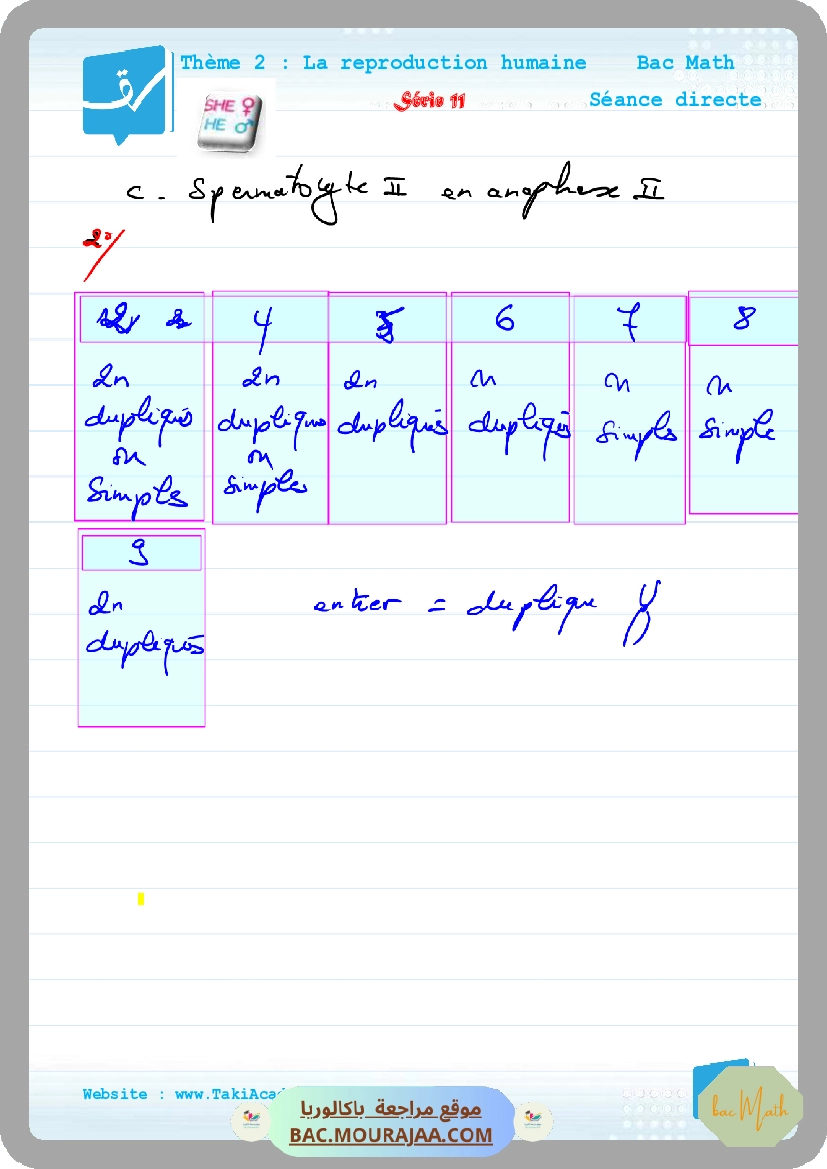 Thème 2 : La reproduction humaine Bac Math
SHE ♀
HE ♂
Série 11 Séance directe
c. Spermatocyte II en anaphase II
2°/
4 5 6 7 8
2n dupliqués ou simples
2n dupliqués ou simples
2n dupliqués
n dupliqués
n simples
n simple
9
2n
dupliqués
entier = duplique
Website : www.TakiAcad
موقع مراجعة باكالوريا
BAC.MOURAJAA.COM
bac Math